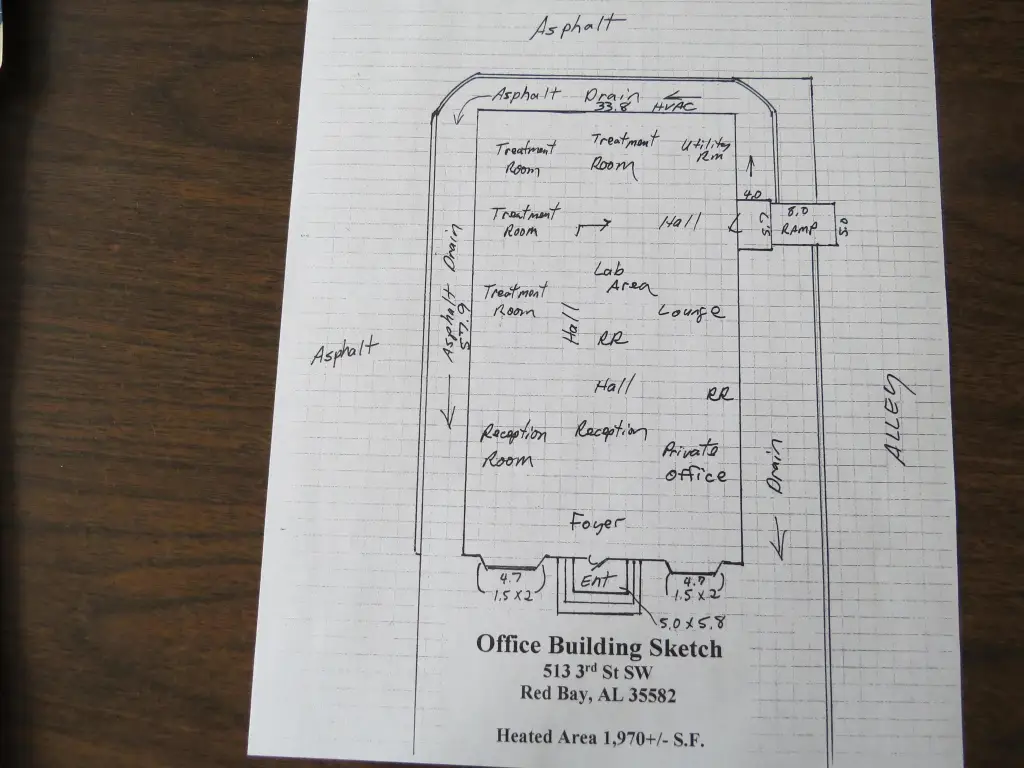 Asphalt
Asphalt Drain HVAC
33.8
Treatment Room
Treatment Room
Utility Rm
4.0
Treatment Room
Hall
5.7
8.0
RAMP
5.0
Lab Area
Treatment Room
Hall
Lounge
RR
Asphalt Drain
57.9
Asphalt
Hall
RR
ALLEY
Reception Room
Reception
Private office
Drain
Foyer
4.7
1.5 x 2
Ent
4.7
1.5 x 2
5.0 x 5.8
Office Building Sketch
513 3rd St SW
Red Bay, AL 35582
Heated Area 1,970+/- S.F.